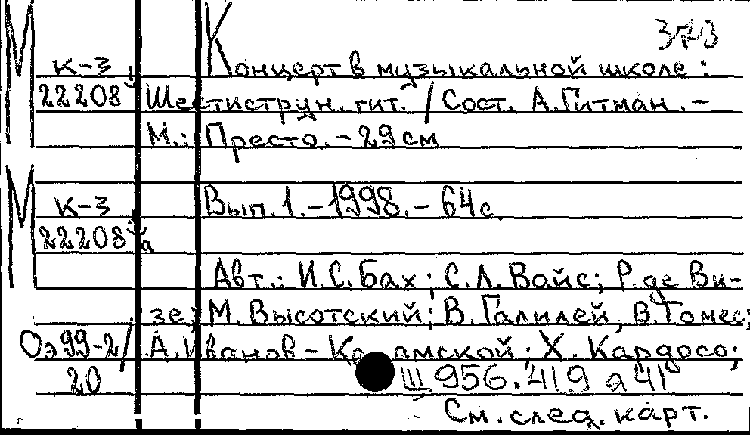 М К 373
К-3 Концерт в музыкальной школе :
22208 Шестиструн. гит. / Сост. А. Гитман. –
М.: Престо. – 29 см
М К-3 Вып. 1. – 1998. – 64 с.
22208 а
Авт.: И.С. Бах; С.Л. Вайс; Р. де Ви-
зе; М. Высотский; В. Галилей, В. Гомес;
Оэ 99-2/ А. Иванов-Крамской; Х. Кардосо;
20 Ш 956.419 а 41
См. след. карт.